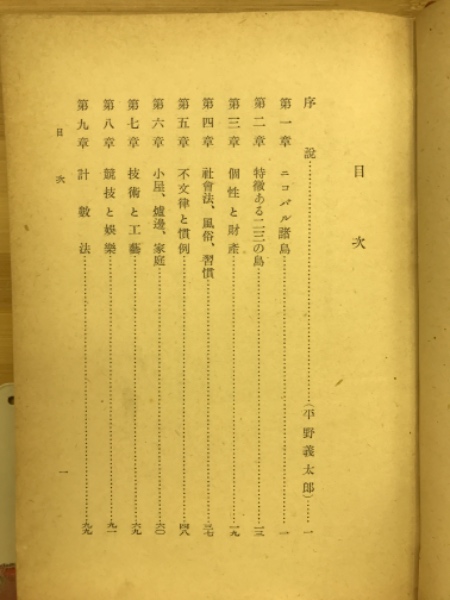 目次
序説……………(平野義太郎)……一
第一章 ニコバル諸島……………一
第二章 特徵ある二三の島……………一三
第三章 個性と財產……………一九
第四章 社會法、風俗、習慣……………三七
第五章 不文律と慣例……………四八
第六章 小屋、爐邊、家庭……………六〇
第七章 技術と工藝……………六九
第八章 競技と娛樂……………九一
第九章 計數法……………九九
目次 一